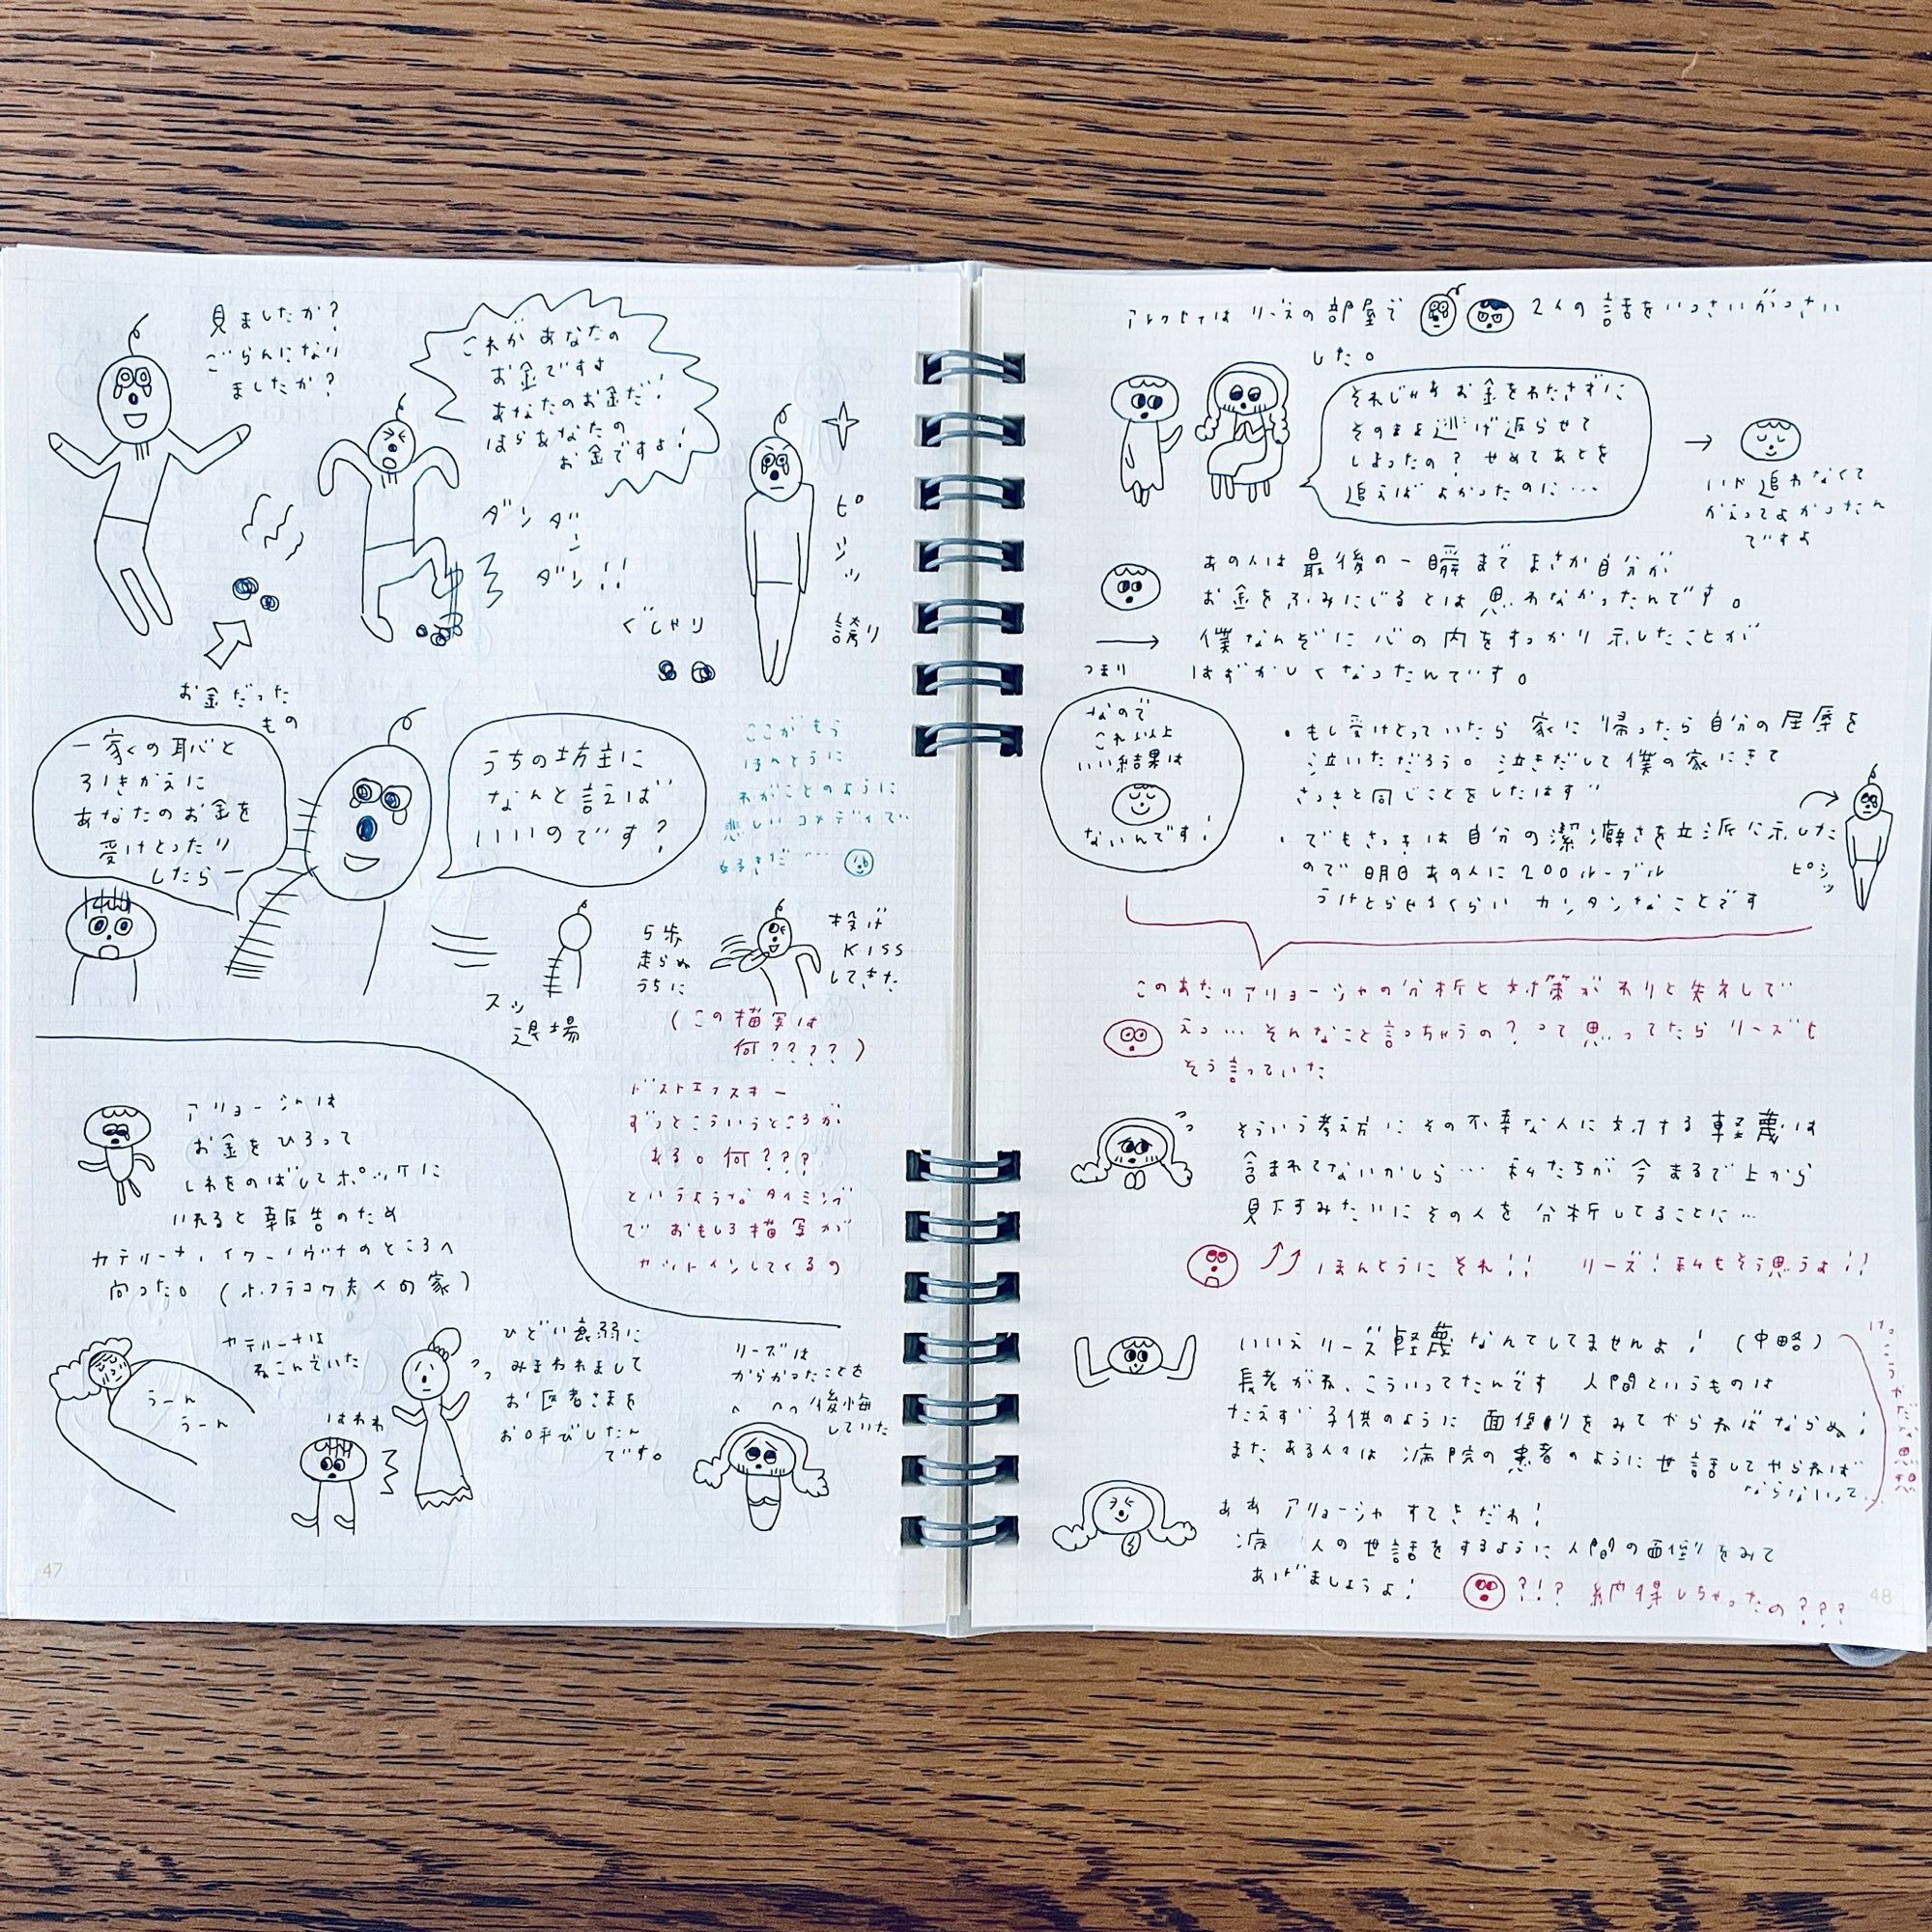 見ましたか?
ごらんになり
ましたか?
これが あなたの
お金ですよ
あなたのお金だ!
ほらあなたの
お金ですよ!
ダン ダン
ダン!!
お金だった
もの
ぐしゃり
ピシッ
誇り
一家の恥と
引きかえに
あなたのお金を
受けとったり
したらー
うちの坊主に
なんと言えば
いいのです?
ここがもう
ほんとうに
わがことのように
悲しいコメディで
好きだ…
スッ
退場
5歩
走らぬ
うちに
投げ
KISS
してきた
(この描写は
何????)
ドストエフスキー
ずっとこういうところが
ある。何???
というようなタイミング
で おもしろ描写が
カットインしてくるの
アリョーシャは
お金をひろって
しわをのばしてポッケに
いれると報告のため
カテリーナ・イワーノヴナのところへ
向った。(ホフラコワ夫人の家)
カテリーナは
ねこんでいた
うーん
うーん
はわわ
ひどい衰弱に
みまわれまして
お医者さまを
お呼びしたん
です。
リーズは
からかったことを
後悔
していた
47
アレクセイは リーズの部屋で 2人の話をいっさいがっさい
した。
それじゃあお金をわたさずに
そのまま逃げ返らせて
しまったの? せめてあとを
追えば よかったのに…
→
いや追わなくて
かえってよかったん
ですよ
あの人は最後の一瞬までまさか自分が
お金をふみにじるとは思わなかったんです。
→ 僕なんぞに心の内をすっかり示したことが
つまり はずかしくなったんです。
なので
これ以上
いい結果は
ないんです!
・もし受けとっていたら 家に帰ったら自分の屈辱を
泣いただろう。泣きだして僕の家にきて
さっきと同じことをしたはず
・でもさっきは自分の潔癖さを立派に示した
ので明日あの人に200ルーブル
うけとらせるくらい カンタンなことです
ピシッ
このあたりアリョーシャの分析と対策がわりと失礼で
えっ…そんなこと言っちゃうの?って思ってたらリーズも
そう言っていた
そういう考え方にその不幸な人に対する軽蔑は
含まれてないかしら…私たちが今まるで上から
見下すみたいにその人を分析してることに…
ほんとうにそれ!! リーズ!私もそう思うよ!!
いいえリーズ軽蔑なんてしてませんよ!(中略)
長老がね、こういってたんです 人間というものは
たえず子供のように面倒をみてやらねばならぬ!
またある人々は病院の患者のように世話してやらねば
ならないって
けっこうやだな思想
ああ アリョーシャ すてきだわ!
病人の世話をするように人間の面倒をみて
あげましょうよ!
?!? 納得しちゃったの???
48